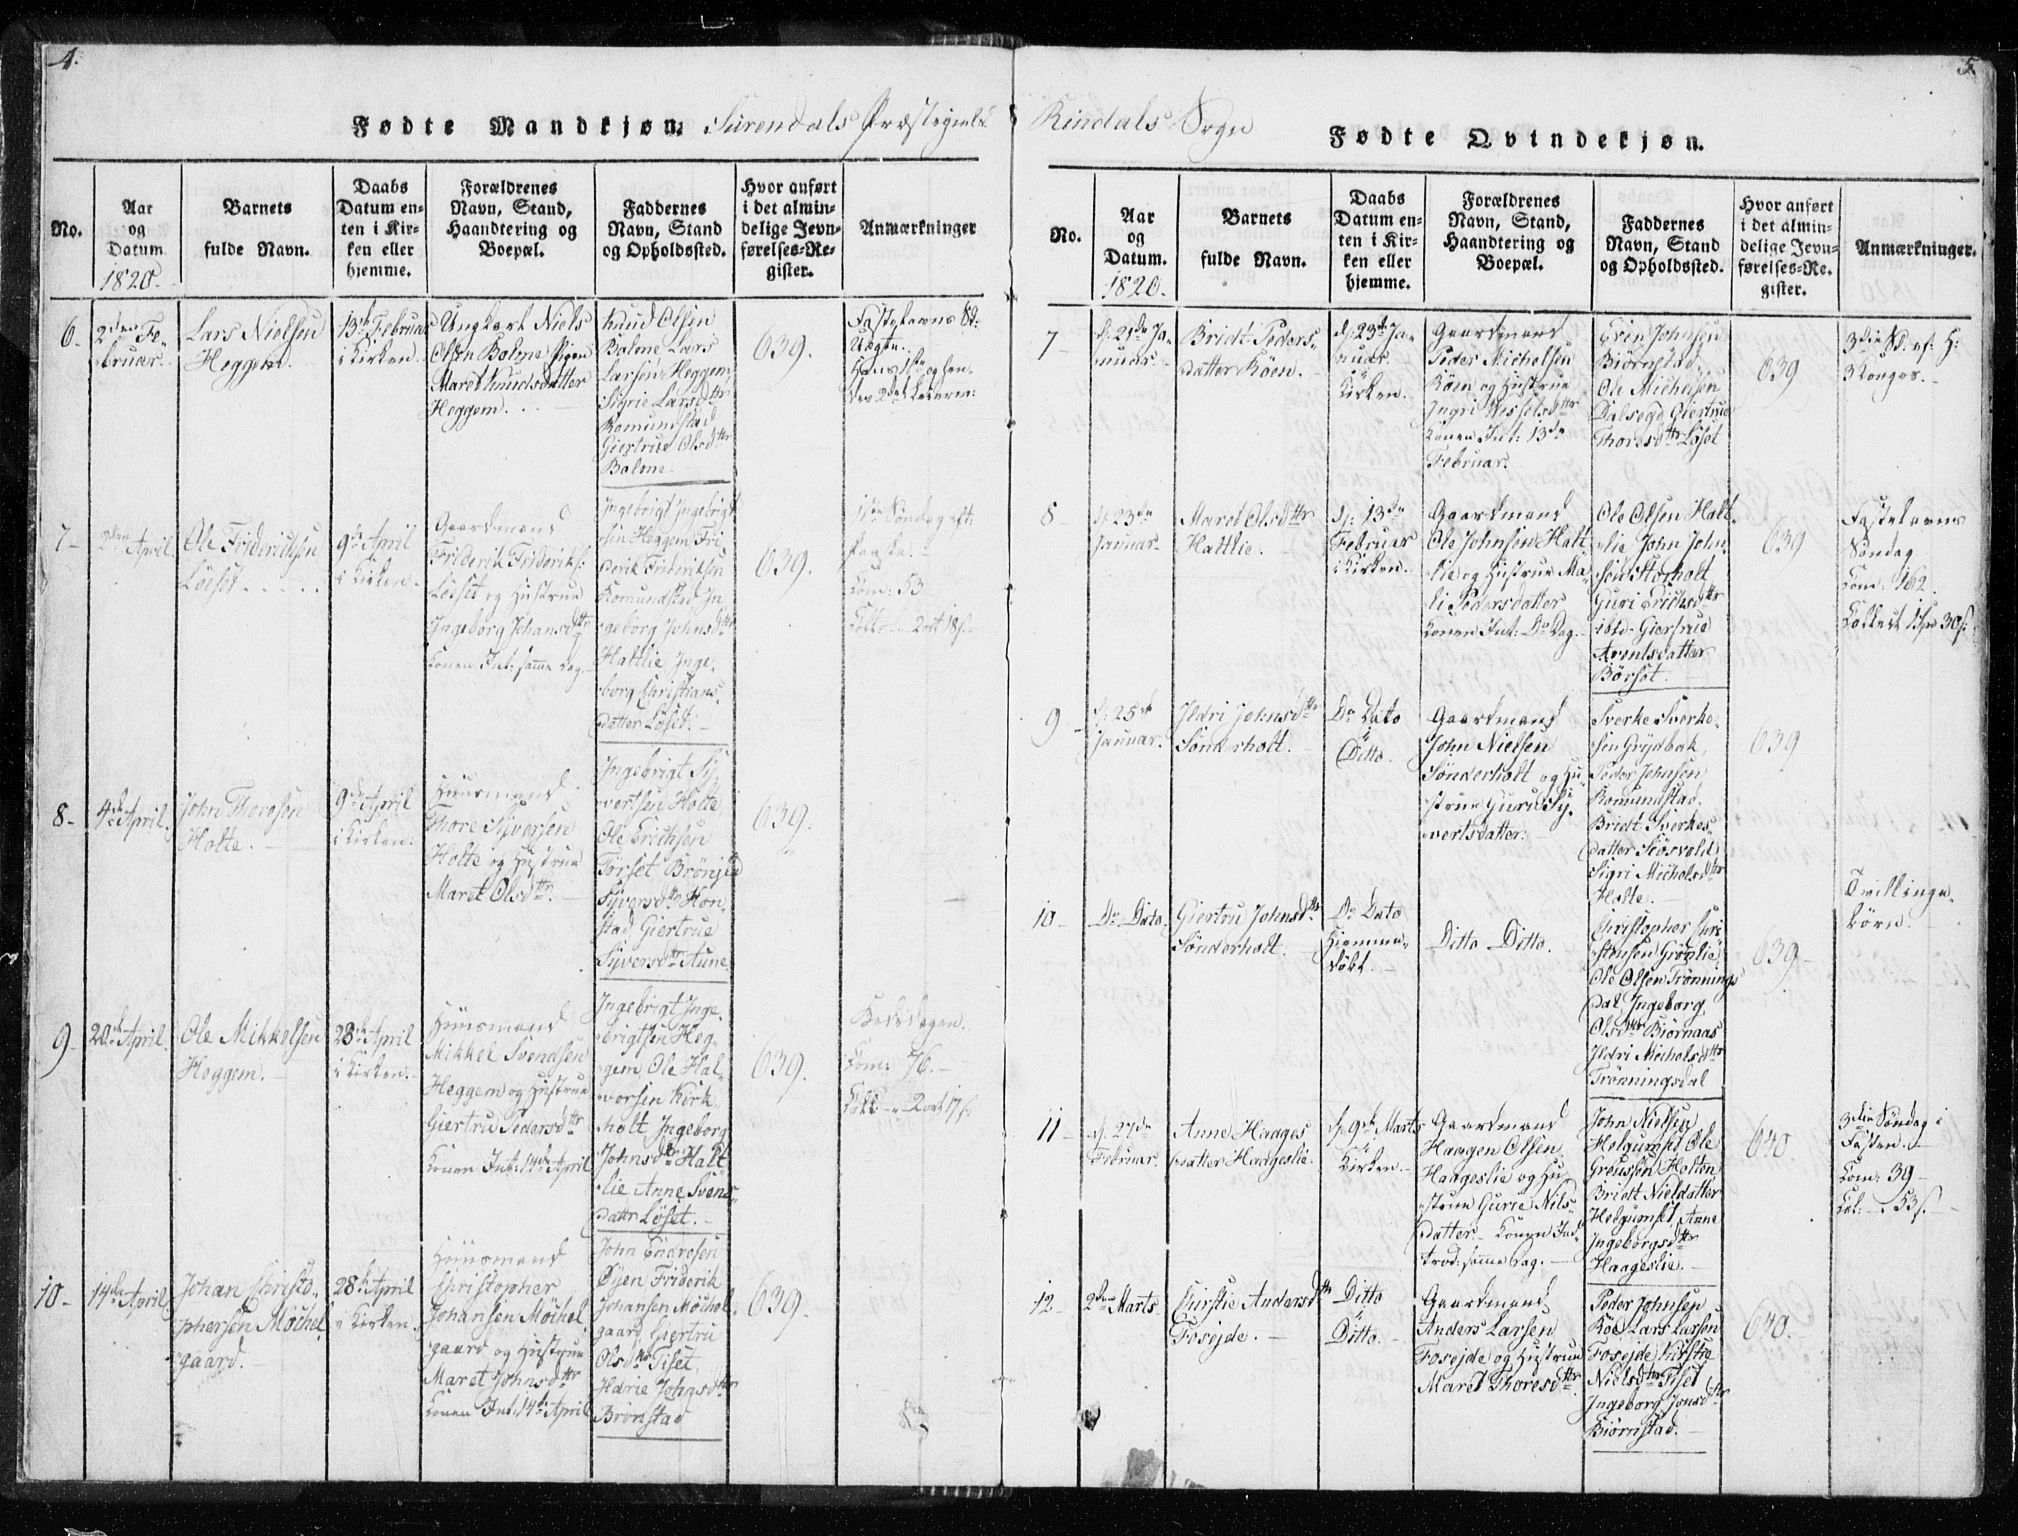 4.
Fødte Mandkjøn. Surendals Præstegield
No.
Aar
og
Datum
1820.
Barnets
fulde Navn.
Daabs
Datum en-
ten i Kir-
ken eller
hjemme.
Forældrenes
Navn, Stand,
Haandtering og
Boepæl.
Faddernes
Navn, Stand
og Opholdssted.
Hvor anført
i det almin-
delige Jevn-
førelses-Re-
gister.
Anmærkninger
6.
2den Fe-
bruar.
Lars Nielsen
Heggem.
13de Februar
i Kirken.
Ungkarl Niels
Olsen Bolme Pigen
Maret Knudsdatter
Heggem.
Knud Olsen
Bolme Lars
Larsen Heggem
Sigrie Larsdttr
Romundstad
Giertrue Olsdttr
Bolme.
639.
Fastelavns Sd:
Uægte.
7-
2den April.
Ole Friderichsen
Löset
9de April
i Kirken.
Gaardmand
Friderik Frideriks:
Löset og Hustrue
Ingeborg Johansdttr
Konen Int: samme Dag.
Ingebrigt Ingebrigt
sen Heggem Fri
derik Frideriksen
Romundstad In
geborg Johnsdttr
Hattlie Inge-
borg Christians-
datter Löset.
639.
1ste Söndag eft:
Paaske.
Com: 53
8-
4de April.
John Thoresen
Holte.
9de April
i Kirken.
Huusmand
Thore Sÿversen
Holte og Hustrue
Maret Olsdttr.
Ingebrigt Sÿ
vertsen Holte
Ole Erichsen
Torset Brönjld
Sÿversdttr Hon-
stad Giertrue
Sÿversdttr Aune.
639.
9-
20de April.
Ole Mikkelsen
Heggem.
28de April
i Kirken.
Huusmand
Mikkel Svendsen
Heggem og Hustrue
Giertru Pedersdttr
Konen Int: 14de April
Ingebrigt Inge-
brigtsen Heg-
gem, Ole Hal-
vorsen Kirk-
holt Ingeborg
Johnsdtr Hatt
lie, Anne Svens-
dattr Löset.
639.
Bededagen.
Com: 76.
10-
14de April.
Johan Christo-
phersen Möchel
gaard.
28de April
i Kirken.
Huusmand
Christopher
Johansen Möchel
gaard og Hustrue
Maret Johnsdttr
Konen Int: 14de April
John Endresen
Öÿen Friderik
Johansen Möchel
gaard Giertru
Olsdttr Tiset
Ildrie Johnsdttr
Brönstad
639.
5.
Rindals Sogn Fødte Qvindekjøn.
No.
Aar
og
Datum.
1820.
Barnets
fulde Navn.
Daabs
Datum en-
ten i Kir-
ken eller
hjemme.
Forældrenes
Navn, Stand,
Haandtering og
Boepæl.
Faddernes
Navn, Stand
og Opholdssted.
Hvor anført
i det almin-
delige Jevn-
førelses-Re-
gister.
Anmærkninger.
7-
d: 21de Ja-
nuar.
Bridt Peders-
datter Röen.
d: 23de Ja-
nuar
i
Kirken.
Gaardmand
Peder Michelsen
Röen og Hustrue
Ingri Nisselsdttr
Konen Int: 13de
Februar.
Erin Johnsen
Biörnstad
Ole Michelsen
Dalsegd Giertrue
Thoresdttr Löset
639
3die Sd. ef: H:
3 Konger.
8-
d: 23de
Januar
Maret Olsdttr
Hattlie.
d: 13de
Februar
i Kirken.
Gaardmand
Ole Johnsen Hatt
lie og Hustrue Ma-
li Pedersdatter
Konen Int: Do Dag.
Ole Olsen Hatt-
lie, John John-
sen Storholt
Guri Erichsdttr
ibid. Giertrue
Arentsdatter
Börset.
639
Fastelavns
Söndag
Com: 162.
9-
d: 25de
Januar.
Ildri Johnsdttr
Sönderholt.
Do Dato
i
Ditto.
Gaardmand
John Nielsen
Sönderholt og Hu-
strue Guru Sÿ-
vertsdatter.
Sverke Sverke-
sen Grÿdbak,
Peder Johnsen
Romundstad.
Bridt Sverkes-
datter Siösvold
Sigri Michelsdttr
Holte.
639
10-
Do Dato.
Giertru Johnsdttr
Sönderholt.
Do Dato
Hjemme-
döbt.
Ditto Ditto.
Christopher Chri
stensen Grönlie
Ole Olsen Trönnings
dal, Ingeborg
Olsdttr Biörnaas
Ildri Michelsdttr
Trönningsdal
639-
Tvillinge-
börn.
11-
d: 27de
Februar.
Anne Haages
datter Haageslie.
d: 9de Marts
i
Kirken.
Gaardmand
Haagen Olsen
Haageslie og Hu-
strue Gurie Nils-
datter. Konen Int-
trod: samme Dag.
John Nielsen
Helgumset Ole
Groussen Holten
Bridt Nielsdatter
Helgumset, Anne
Ingeborgsdttr
Haageslie.
640.
3die Söndag i
Fasten.
Com: 39-
Col: 53 s.
12-
2den Marts.
Kirstie Andersdttr
Fosejde.
Ditto
i
Ditto.
Gaardmand
Anders Larsen
Fosejde og Hustrue
Maret Thoresdttr.
Peder Johnsen
Röe Lars Larsen
Fosejde Kirstie
Nielsdttr Tiset
Ingeborg Jonsdttr
Biörnstad.
640.